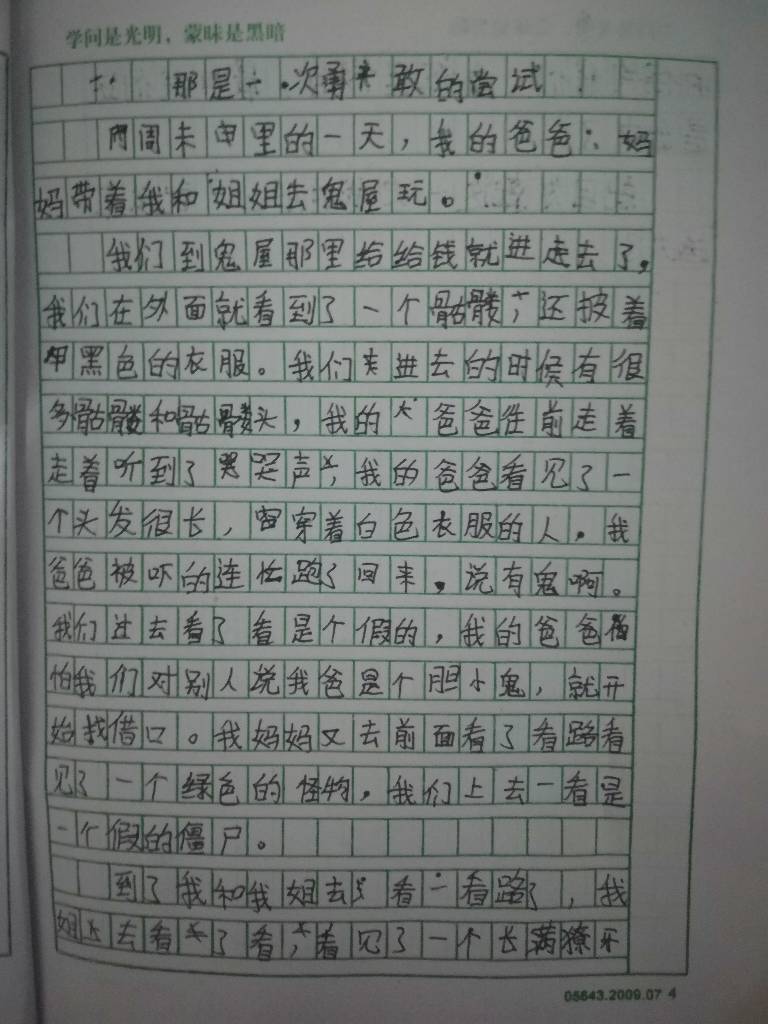 学问是光明，蒙昧是黑暗
那是一次勇敢的尝试
周末里的一天，我的爸爸、妈
妈带着我和姐姐去鬼屋玩。
我们到鬼屋那里给给钱就进走去了，
我们在外面就看到了一个骷髅，还披着
黑色的衣服。我们进去的时候有很
多骷髅和骷髅头，我的爸爸往前走着
走着听到了哭声，我的爸爸看见了一
个头发很长，穿着白色衣服的人。我
爸爸被吓的连忙跑了回来，说有鬼啊。
我们过去看了看是个假的，我的爸爸
怕我们对别人说我爸是个胆小鬼，就开
始找借口。我妈妈又去前面看了看路看
见了一个绿色的怪物，我们上去一看是
一个假的僵尸。
到了我和我姐去看一看路了，我
姐去看了看，看见了一个长满獠牙
05643.2009.07 4